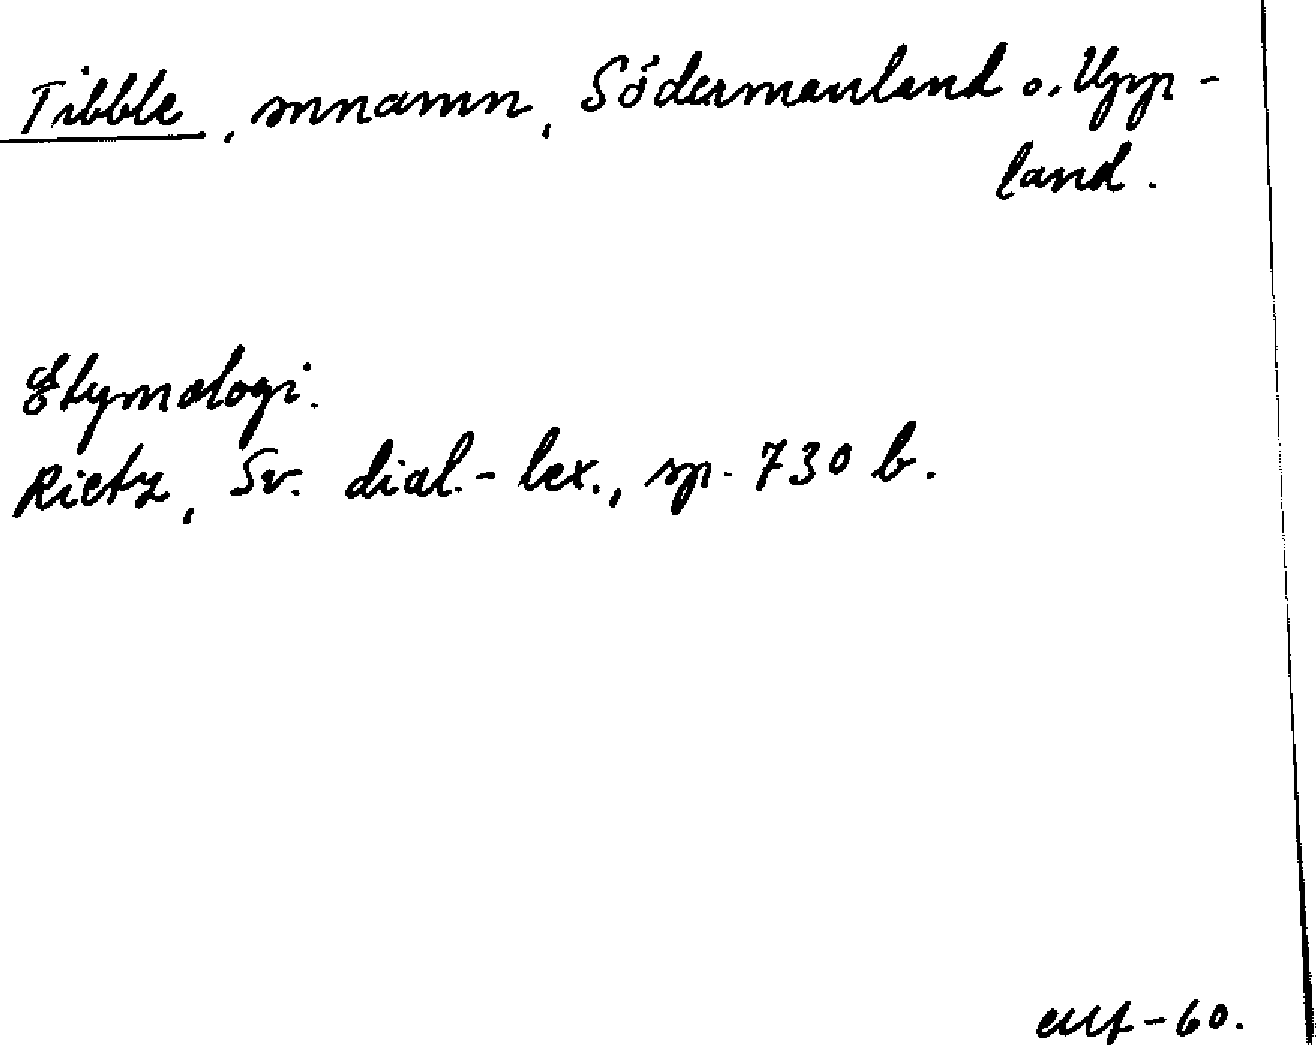 Tibble, snnamn, Södermanland o. Upp-
land.
Etymologi.
Rietz, Sv. dial.-lex., sp. 730 b.
-60.